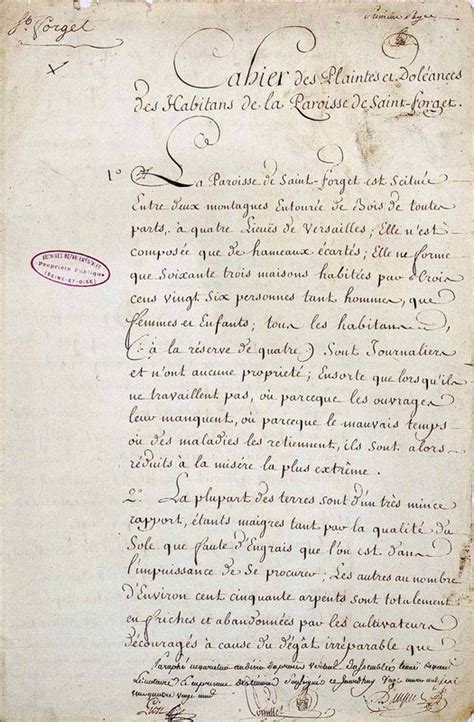 St. Forget
Premiere Page
Cahier des Plaintes et Doléances
des Habitans de la Paroisse de Saint-Forget.
Ce
1° La Paroisse de Saint-Forget est scituée
Entre deux montagnes Entourée de Bois de toutes
parts, à quatre Lieuës de Versailles; Elle n'est
composée que de hameaux écartés; Elle ne forme
que Soixante trois maisons habitées par Trois
cens vingt Six personnes tant hommes, que
femmes et Enfants; tous les habitans,
(à la réserve de quatre) Sont Journaliers
et n'ont aucune proprieté; Ensorte que lorsqu'ils
ne travaillent pas, où parceque les ouvrages
leur manquent, où parceque le mauvais temps
où des maladies les retiennent, ils sont alors
réduits à la misére la plus extrême.
ARCHIVES DÉPARTEMENTALES
Propriété Publique
(SEINE-ET-OISE)
2° La plupart des terres sont d'un très mince
rapport, étants maigres tant par la qualité du
Sole que faute d'Engrais que l'on est dans
l'impuissance de se procurer; Les autres au nombre
d'Environ cent cinquante arpents sont totalement
en friches et abandonnées par les cultivateurs
découragés à cause du dégât irréparable que